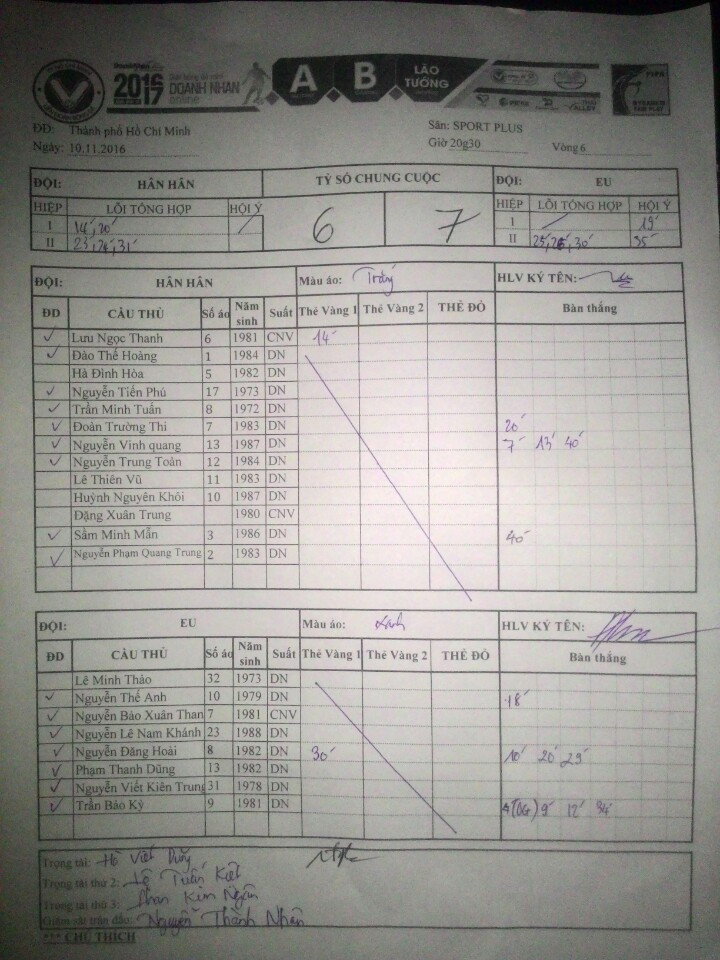 2016
2017
DOANH NHÂN
online
A B LÃO TƯỚNG
FIFA
ĐĐ: Thành phố Hồ Chí Minh Sân: SPORT PLUS
Ngày: 10.11.2016 Giờ 20g30 Vòng 6
ĐỘI: HÂN HÂN TỶ SỐ CHUNG CUỘC ĐỘI: EU
HIỆP LỖI TỔNG HỢP HỘI Ý 6 7 HIỆP LỖI TỔNG HỢP HỘI Ý
I 14', 20' / I / 19'
II 23', 31' II 25', 30' 35'
ĐỘI: HÂN HÂN Màu áo: Trắng HLV KÝ TÊN:
ĐD CẦU THỦ Số áo Năm sinh Suất Thẻ Vàng 1 Thẻ Vàng 2 THẺ ĐỎ Bàn thắng
✓ Lưu Ngọc Thanh 6 1981 CNV 14'
✓ Đào Thế Hoàng 1 1984 DN
Hà Đình Hòa 5 1982 DN
✓ Nguyễn Tiến Phú 17 1973 DN
✓ Trần Minh Tuấn 8 1972 DN
✓ Đoàn Trường Thi 7 1983 DN 20'
✓ Nguyễn Vinh quang 13 1987 DN 7' 13' 40'
✓ Nguyễn Trung Toàn 12 1984 DN
Lê Thiên Vũ 11 1983 DN
Huỳnh Nguyên Khôi 10 1987 DN
Đặng Xuân Trung 1980 CNV
✓ Sầm Minh Mẫn 3 1986 DN 40'
✓ Nguyễn Phạm Quang Trung 2 1983 DN
ĐỘI: EU Màu áo: Xanh HLV KÝ TÊN:
ĐD CẦU THỦ Số áo Năm sinh Suất Thẻ Vàng 1 Thẻ Vàng 2 THẺ ĐỎ Bàn thắng
Lê Minh Thảo 32 1973 DN
✓ Nguyễn Thế Anh 10 1979 DN 18'
✓ Nguyễn Bảo Xuân Than 7 1981 CNV
✓ Nguyễn Lê Nam Khánh 23 1988 DN
✓ Nguyễn Đăng Hoài 8 1982 DN 30' 10' 20' 29'
✓ Phạm Thanh Dũng 13 1982 DN
✓ Nguyễn Viết Kiên Trung 31 1978 DN
✓ Trần Bảo Kỳ 9 1981 DN (OG) 9' 12' 34'
Trọng tài: Hồ Viết Dũng
Trọng tài thứ 2: Lê Tuấn Kiệt
Trọng tài thứ 3: Phan Kim Ngân
Giám sát trận đấu: Nguyễn Thành Nhân
*** CHÚ THÍCH